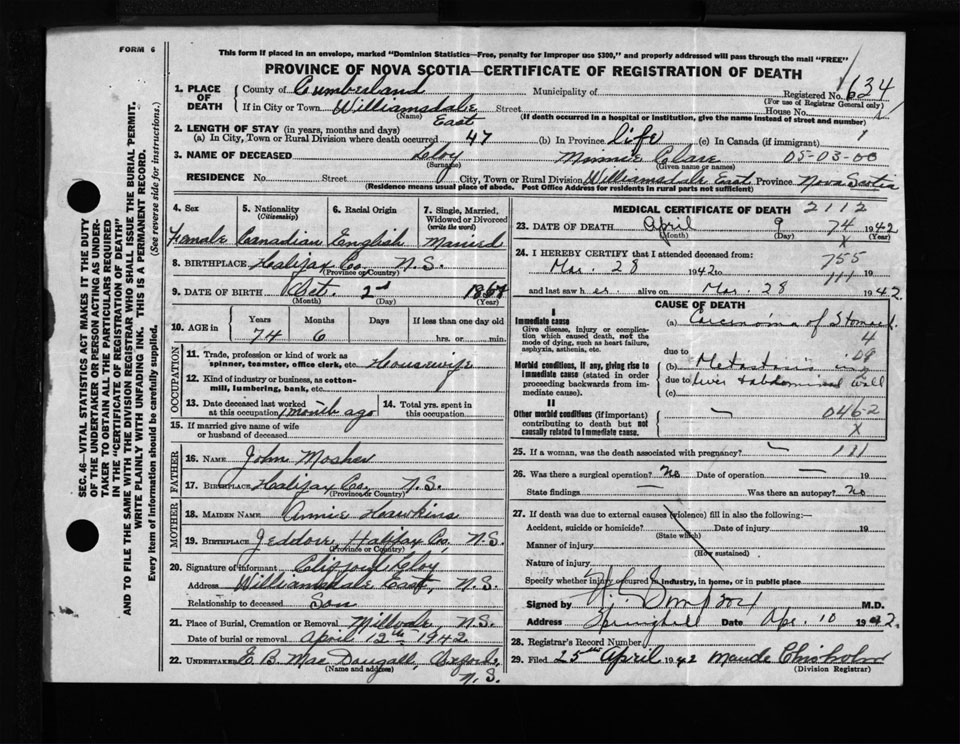 FORM 6
This form if placed in an envelope, marked "Dominion Statistics—Free, penalty for improper use $300," and properly addressed will pass through the mail "FREE"
PROVINCE OF NOVA SCOTIA—CERTIFICATE OF REGISTRATION OF DEATH
1. PLACE OF DEATH
County of Cumberland Municipality of Registered No. 634
(For use of Registrar General only)
If in City or Town Williamsdale East Street House No.
(Name) (If death occurred in a hospital or institution, give the name instead of street and number)
2. LENGTH OF STAY (in years, months and days)
(a) In City, Town or Rural Division where death occurred 47 (b) In Province life (c) In Canada (if immigrant)
3. NAME OF DECEASED Minnie Clare 05-03-00
(Surname) (Given name or names)
RESIDENCE No. Street City, Town or Rural Division Williamsdale East Province Nova Scotia
(Residence means usual place of abode. Post Office Address for residents in rural parts not sufficient)
4. Sex 5. Nationality (Citizenship) 6. Racial Origin 7. Single, Married, Widowed or Divorced (write the word)
Female Canadian English Married
8. BIRTHPLACE Halifax Co. N.S.
(Province or Country)
9. DATE OF BIRTH Oct. 2nd 1867
(Month) (Day) (Year)
10. AGE in Years Months Days If less than one day old
74 6 hrs. or min.
OCCUPATION
11. Trade, profession or kind of work as spinner, teamster, office clerk, etc. Housewife
12. Kind of industry or business, as cotton-mill, lumbering, bank, etc.
13. Date deceased last worked at this occupation 1 month ago 14. Total yrs. spent in this occupation
15. If married give name of wife or husband of deceased
FATHER
16. Name John Mosher
17. Birthplace Halifax Co. N.S.
(Province or Country)
MOTHER
18. Maiden Name Annie Hawkins
19. Birthplace Jeddore, Halifax Co, N.S.
(Province or Country)
20. Signature of informant
Address Williamsdale East, N.S.
Relationship to deceased Son
21. Place of Burial, Cremation or Removal Millvale N.S.
Date of burial or removal April 12th 1942
22. Undertaker E. B. Mac Dougall, Oxford, N.S.
(Name and address)
MEDICAL CERTIFICATE OF DEATH 2112
23. DATE OF DEATH April 9 74 1942
(Month) (Day) X (Year)
24. I HEREBY CERTIFY that I attended deceased from: 755
Mar. 28 1942 to 111 19
and last saw her alive on Mar. 28 1942
CAUSE OF DEATH
I
Immediate cause
Give disease, injury or complication which caused death, not the mode of dying, such as heart failure, asphyxia, asthenia, etc.
(a) Carcinoma of Stomach
4
due to 09
Morbid conditions, if any, giving rise to immediate cause (stated in order proceeding backwards from immediate cause).
(b) Metastasis in
due to liver & abdominal wall
(c)
II
Other morbid conditions (if important) contributing to death but not causally related to immediate cause.
— 046-2
X
25. If a woman, was the death associated with pregnancy? — 111
26. Was there a surgical operation? No Date of operation — 19
State findings — Was there an autopsy? No
27. If death was due to external causes (violence) fill in also the following:—
Accident, suicide or homicide? Date of injury 19
(State which)
Manner of injury
(How sustained)
Nature of injury
Specify whether injury occurred in industry, in home, or in public place
Signed by M.D.
Address Springhill Date Apr. 10 1942.
28. Registrar's Record Number
29. Filed 25th April 1942 Maude Chisholm
(Division Registrar)
SEC. 46—VITAL STATISTICS ACT MAKES IT THE DUTY
OF THE UNDERTAKER OR PERSON ACTING AS UNDER-
TAKER TO OBTAIN ALL THE PARTICULARS REQUIRED
IN THE "CERTIFICATE OF REGISTRATION OF DEATH"
AND TO FILE THE SAME WITH THE DIVISION REGISTRAR WHO SHALL ISSUE THE BURIAL PERMIT.
WRITE PLAINLY WITH UNFADING INK. THIS IS A PERMANENT RECORD.
Every item of information should be carefully supplied. (See reverse side for instructions.)